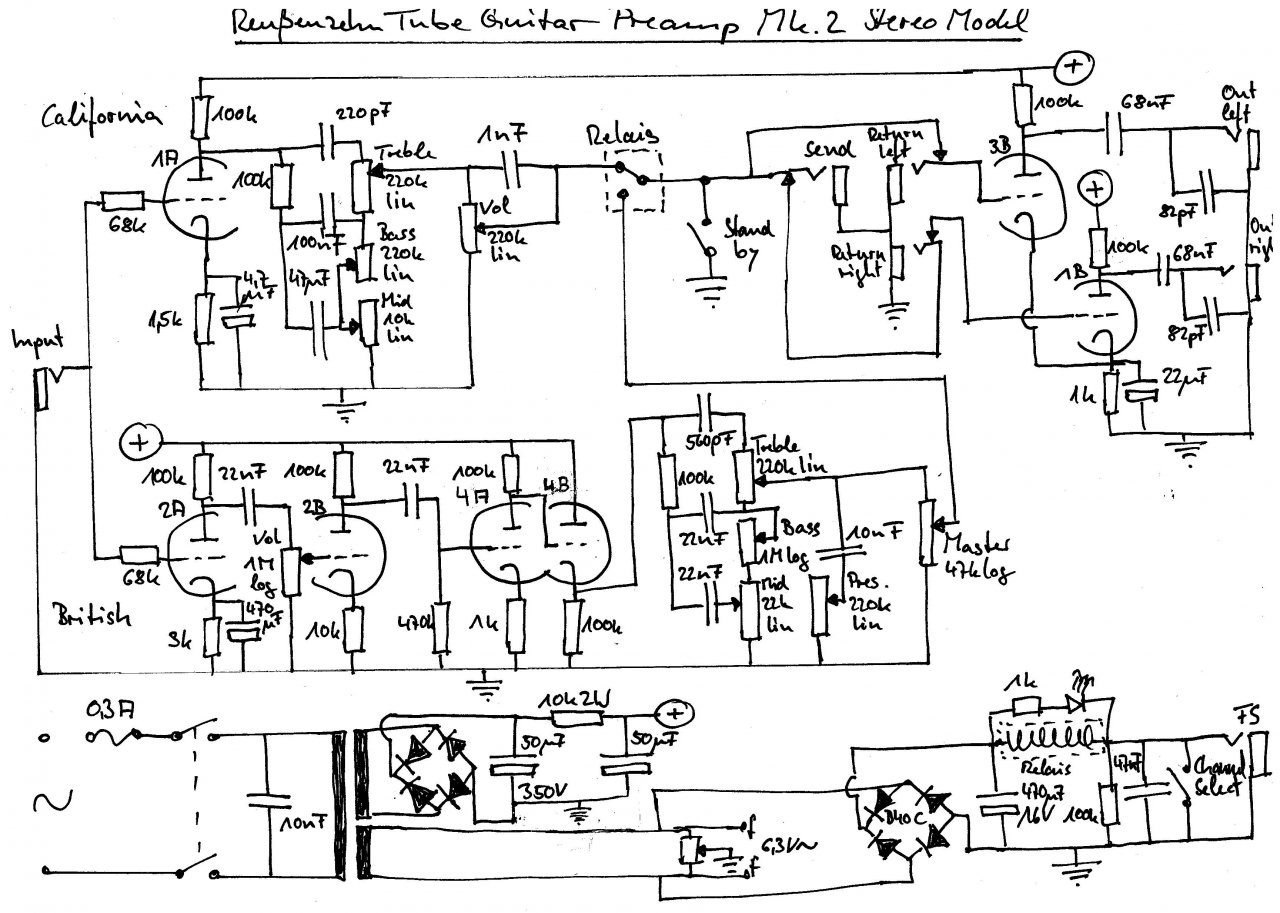 Reußenzehn Tube Guitar Preamp Mk.2 Stereo Model
California
100k
220pF
1nF
Relais
100k
68nF
Out
left
1A
Treble
220k
lin
Send
Return
left
3B
68k
100k
Vol
220k
lin
82pF
100nF
Bass
220k
lin
Stand
by
Return
right
100k
68nF
Out
right
4,7
µF
47nF
1B
1,5k
Mid
10k
lin
82pF
Input
1k
22µF
560pF
100k
22nF
100k
22nF
100k
Treble
220k lin
2A
2B
4A
4B
100k
Vol
1M
log
22nF
Bass
1M log
10nF
Master
47k log
68k
22nF
Mid
22k
lin
Pres.
220k
lin
British
470
µF
3k
10k
470k
1k
100k
0,3A
10k 2W
1k
FS
50µF
50µF
350V
Relais
470µF
16V
47nF
100k
Channel
Select
10nF
B40C
f
6,3V~
f